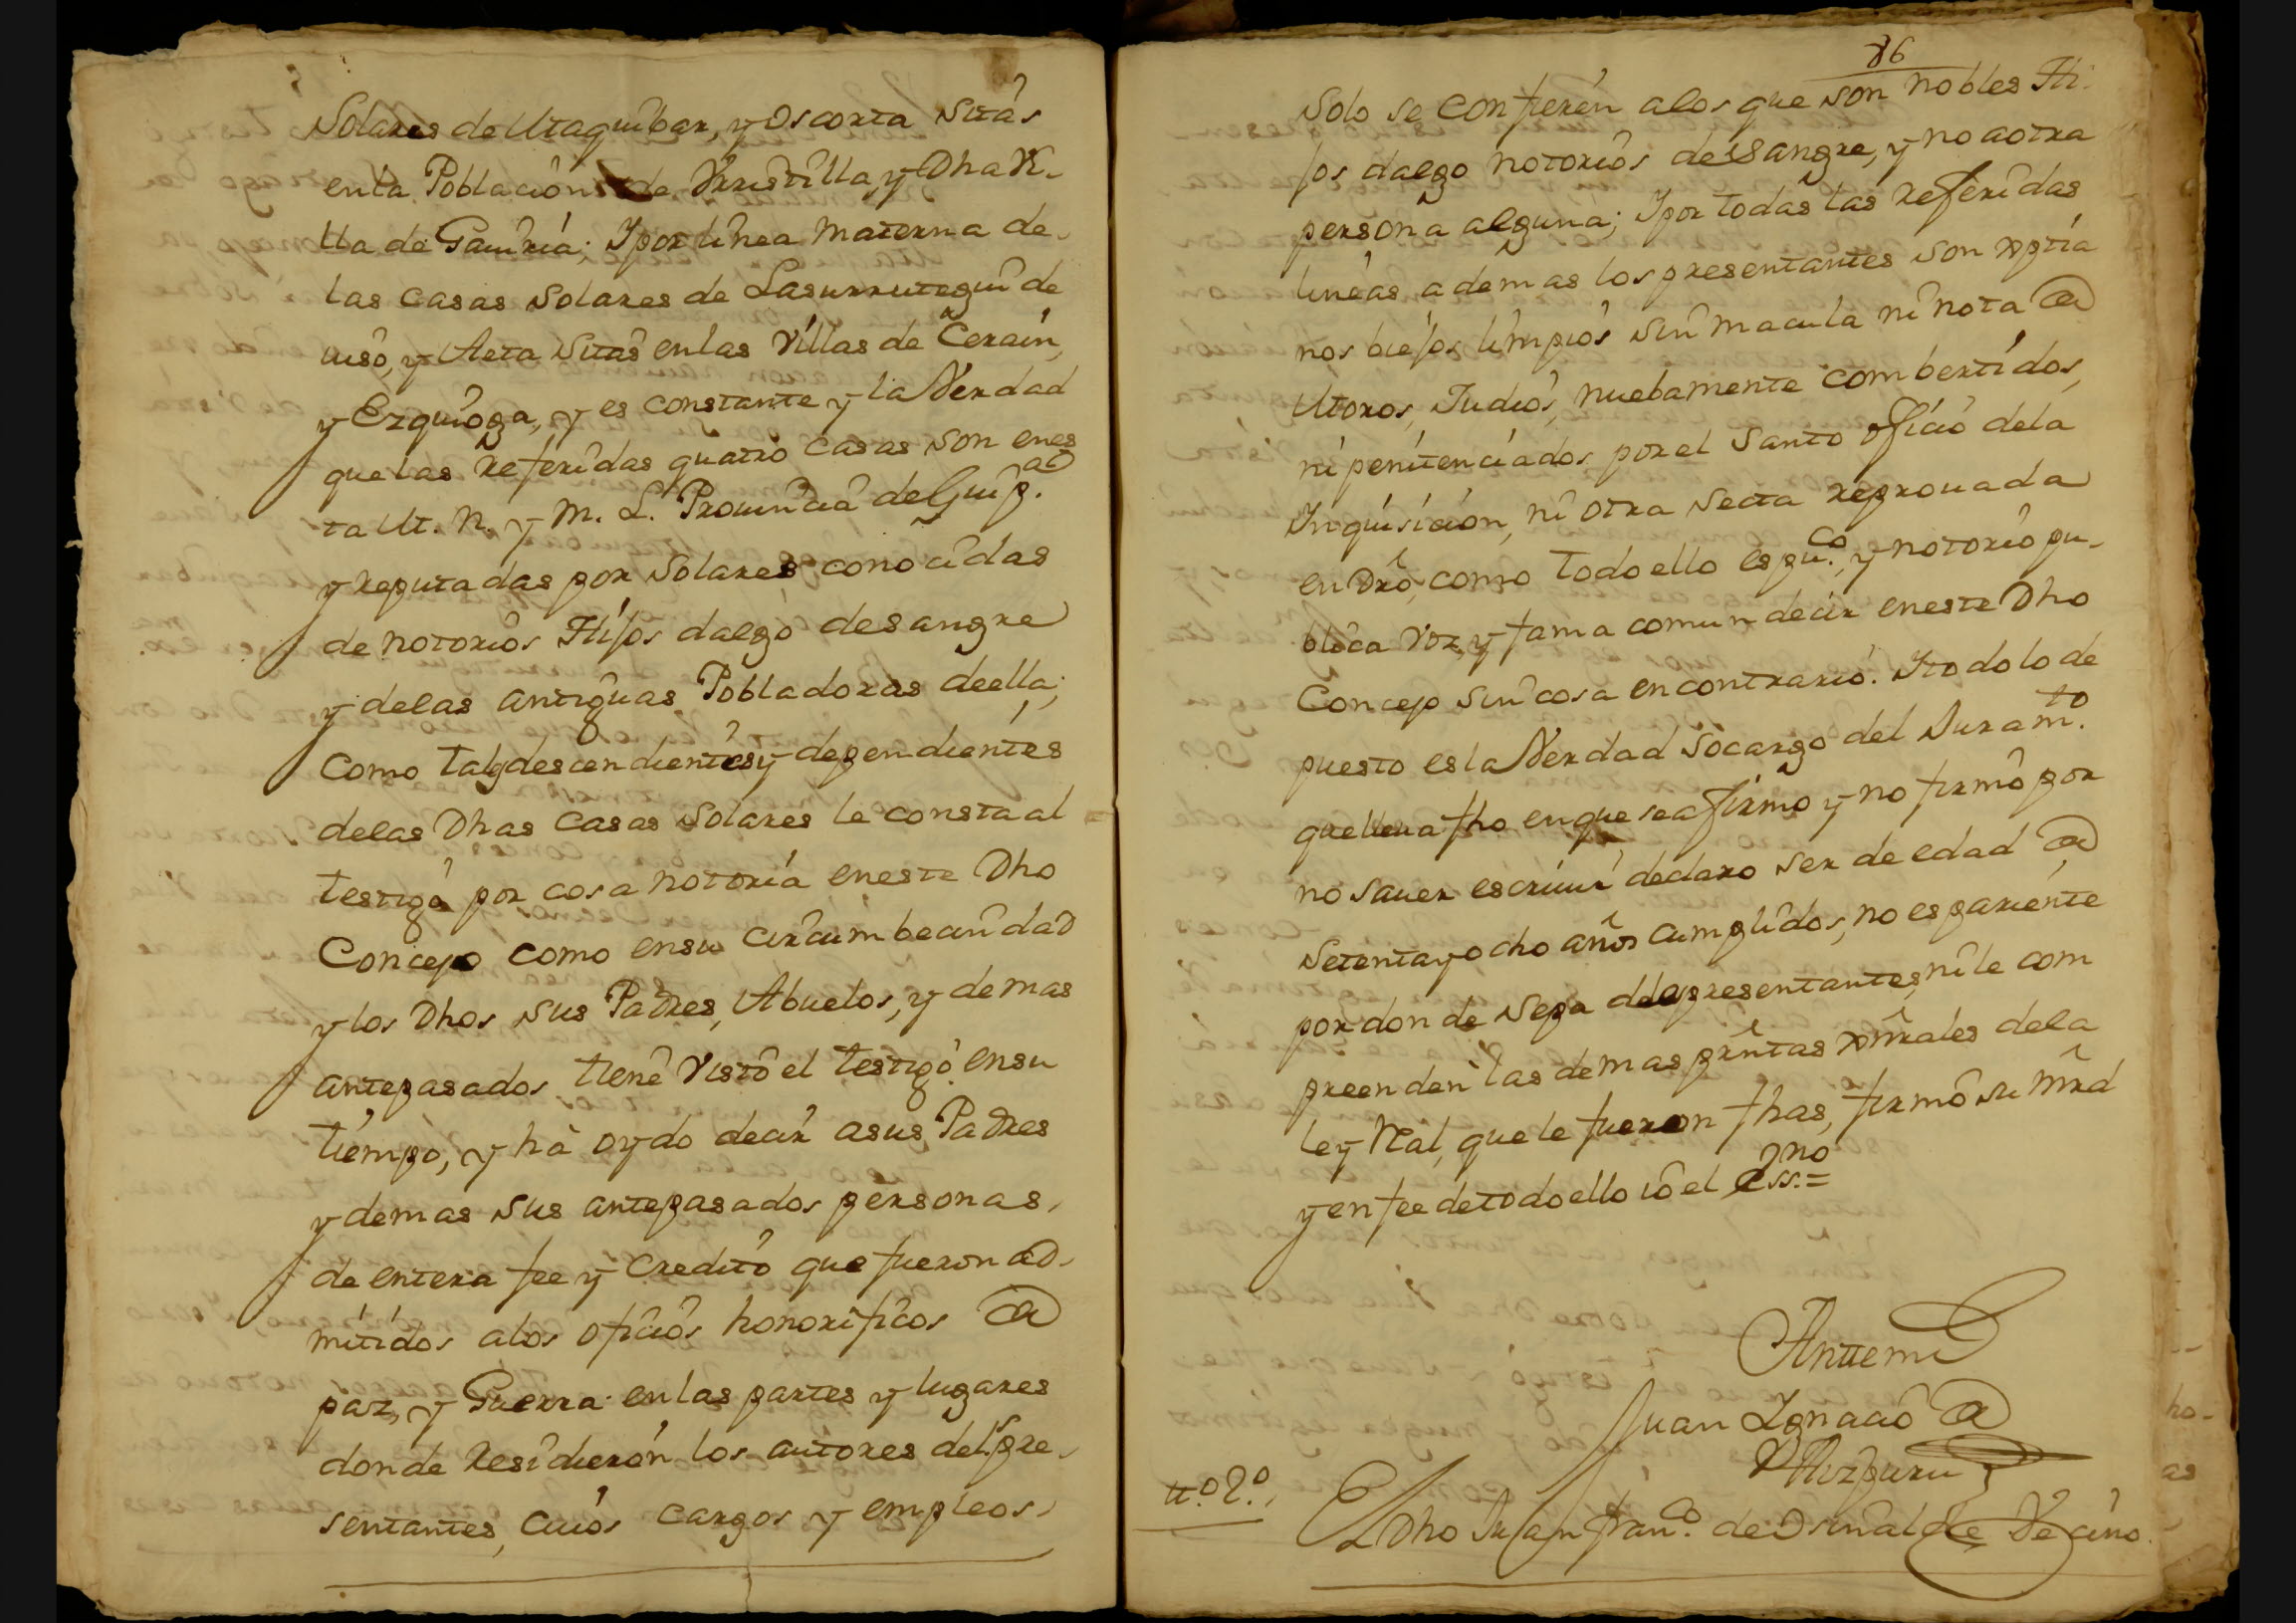 Solares de Utaquibar, y Oscorta Sitas
en la Poblacion de Urrestilla, y Dha Vi-
lla de Gauiria; Y por linea Materna de
las casas Solares de Lasurrutegui de
uiso, y Aeta Sitas en las Villas de Cerain,
y Ezquioga, y es constante y la Verdad
que las Referidas quatro Casas son en es
ta M. N. y M. L. Prouincia de Guip.ᵃ
y reputadas por Solares conocidas
de notorios Hijos dalgo de sangre
y de las antiguas Pobladoras de ella;
Como tal descendientes y dependientes
de las Dhas Casas Solares le consta al
testigo por cosa notoria en este Dho
Concejo como en su circumbecindad
y los Dhos sus Padres, Abuelos, y demas
antepasados tiene Visto el testigo en su
tiempo, y hà oydo decir a sus Padres
y demas sus antepasados personas,
de entera fee y Credito que fueron ad-
mitidos a los oficios honorificos de
paz, y Guerra en las partes y lugares
donde Residieron los autores de los pre-
sentantes, cuios cargos y empleos
86
Solo se confieren a los que son nobles Hi
jos dalgo notorios de sangre, y no a otra
persona alguna; Y por todas las Referidas
lineas ademas los presentantes son xptia
nos biejos limpios sin macula ni nota de
Moros, Judios, nuebamente combertidos,
ni penitenciados por el Santo oficio de la
Inquisicion, ni otra Secta reprouada
en Dro, como todo ello es pu.ᶜᵒ, y notorio pu-
blica voz, y fama comun decir en este Dho
Concejo sin cosa en contrario. Y todo lo de
puesto es la Verdad so cargo del Juram.ᵗᵒ
que lleua fho en que se afirmo y no firmò por
no sauer escriuir declaro ser de edad de
Setenta y ocho años cumplidos, no es pariente
por donde Sepa de los presentantes, ni le com
preenden las demas prẽntas xñrales de la
ley Real, que le fueron fhas, firmò su Mrd
y en fee de todo ello iò el Ess.ⁿᵒ=
Antemi
Juan Ignacio de
Aizpuru
tt.º 2.º,
El Dho Juan Fran.ᶜᵒ de Osinalde Vecino